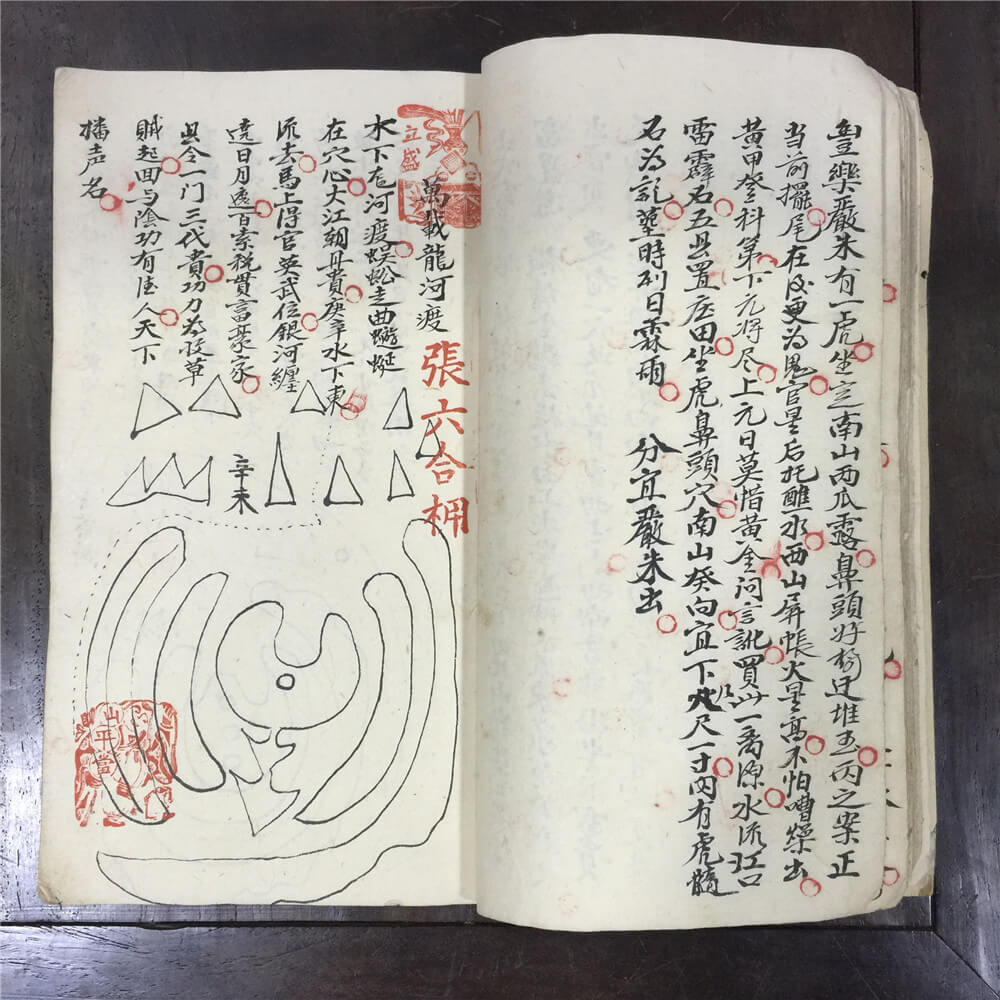 嚴朱有一虎坐定南山西瓜露鼻頭好楊廷堆玉丙之案正
当前擺尾在后更為鬼官星后托醮水西山屏帳火星高不怕嘈燥出
黄甲登科第下元将尽上元日莫惜黄金问言訛買此一斋源水流江口
雷霹石五旦置庄田坐虎鼻頭穴南山癸向宜下九尺一寸内有虎髓
石为記塟時刻日霖雨
分宜嚴朱出
萬載龍河渡
張六合柙
水下龙河渡蜈蚣走曲蟮蜒
在穴心大江朝丹貴庚辛水下東
流去馬上得官英武位銀河纏
遶日月遶百索税貫富豪家
旦今一门三代貴功力茶役草
賊起面与陰功有德人天下
播声名
辛未
立盛
山平當